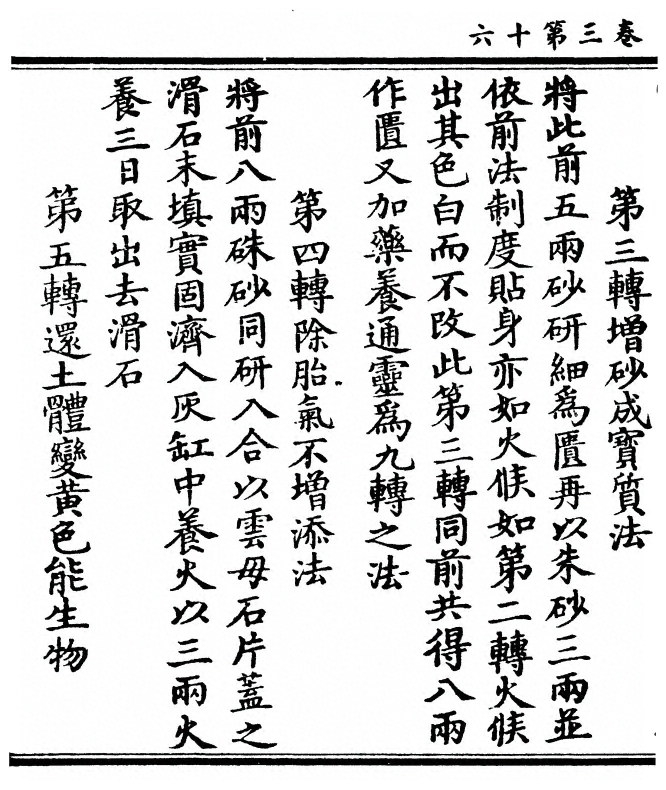 卷三第十六
第三轉增砂成寶質法
將此前五兩砂研細爲匱再以朱砂三兩並
依前法制度貼身亦如火候如第二轉火候
出其色白而不改此第三轉同前共得八兩
作匱又加藥養通靈爲九轉之法
第四轉除胎氣不增添法
將前八兩硃砂同研入合以雲母石片蓋之
滑石末填實固濟入灰缸中養火以三兩火
養三日取出去滑石
第五轉還土體變黃色能生物